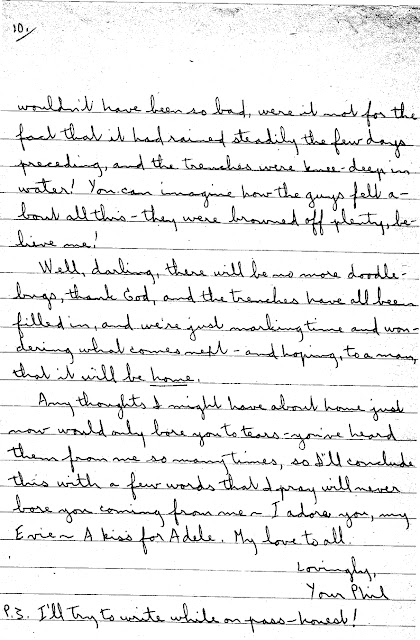 10.
wouldn't have been so bad, were it not for the
fact that it had rained steadily the few days
preceding, and the trenches were knee-deep in
water! You can imagine how the guys felt a-
bout all this - they were browned off plenty, be-
lieve me!
Well, darling, there will be no more doodle-
bugs, thank God, and the trenches have all been
filled in, and we're just marking time and won-
dering what comes next - and hoping, to a man,
that it will be home.
Any thoughts I might have about home just
now would only bore you to tears - you've heard
them from me so many times, so I'll conclude
this with a few words that I pray will never
bore you coming from me ~ I adore you, my
Evie ~ A kiss for Adele. My love to all.
Lovingly,
Your Phil
P.S. I'll try to write while on pass - honest!